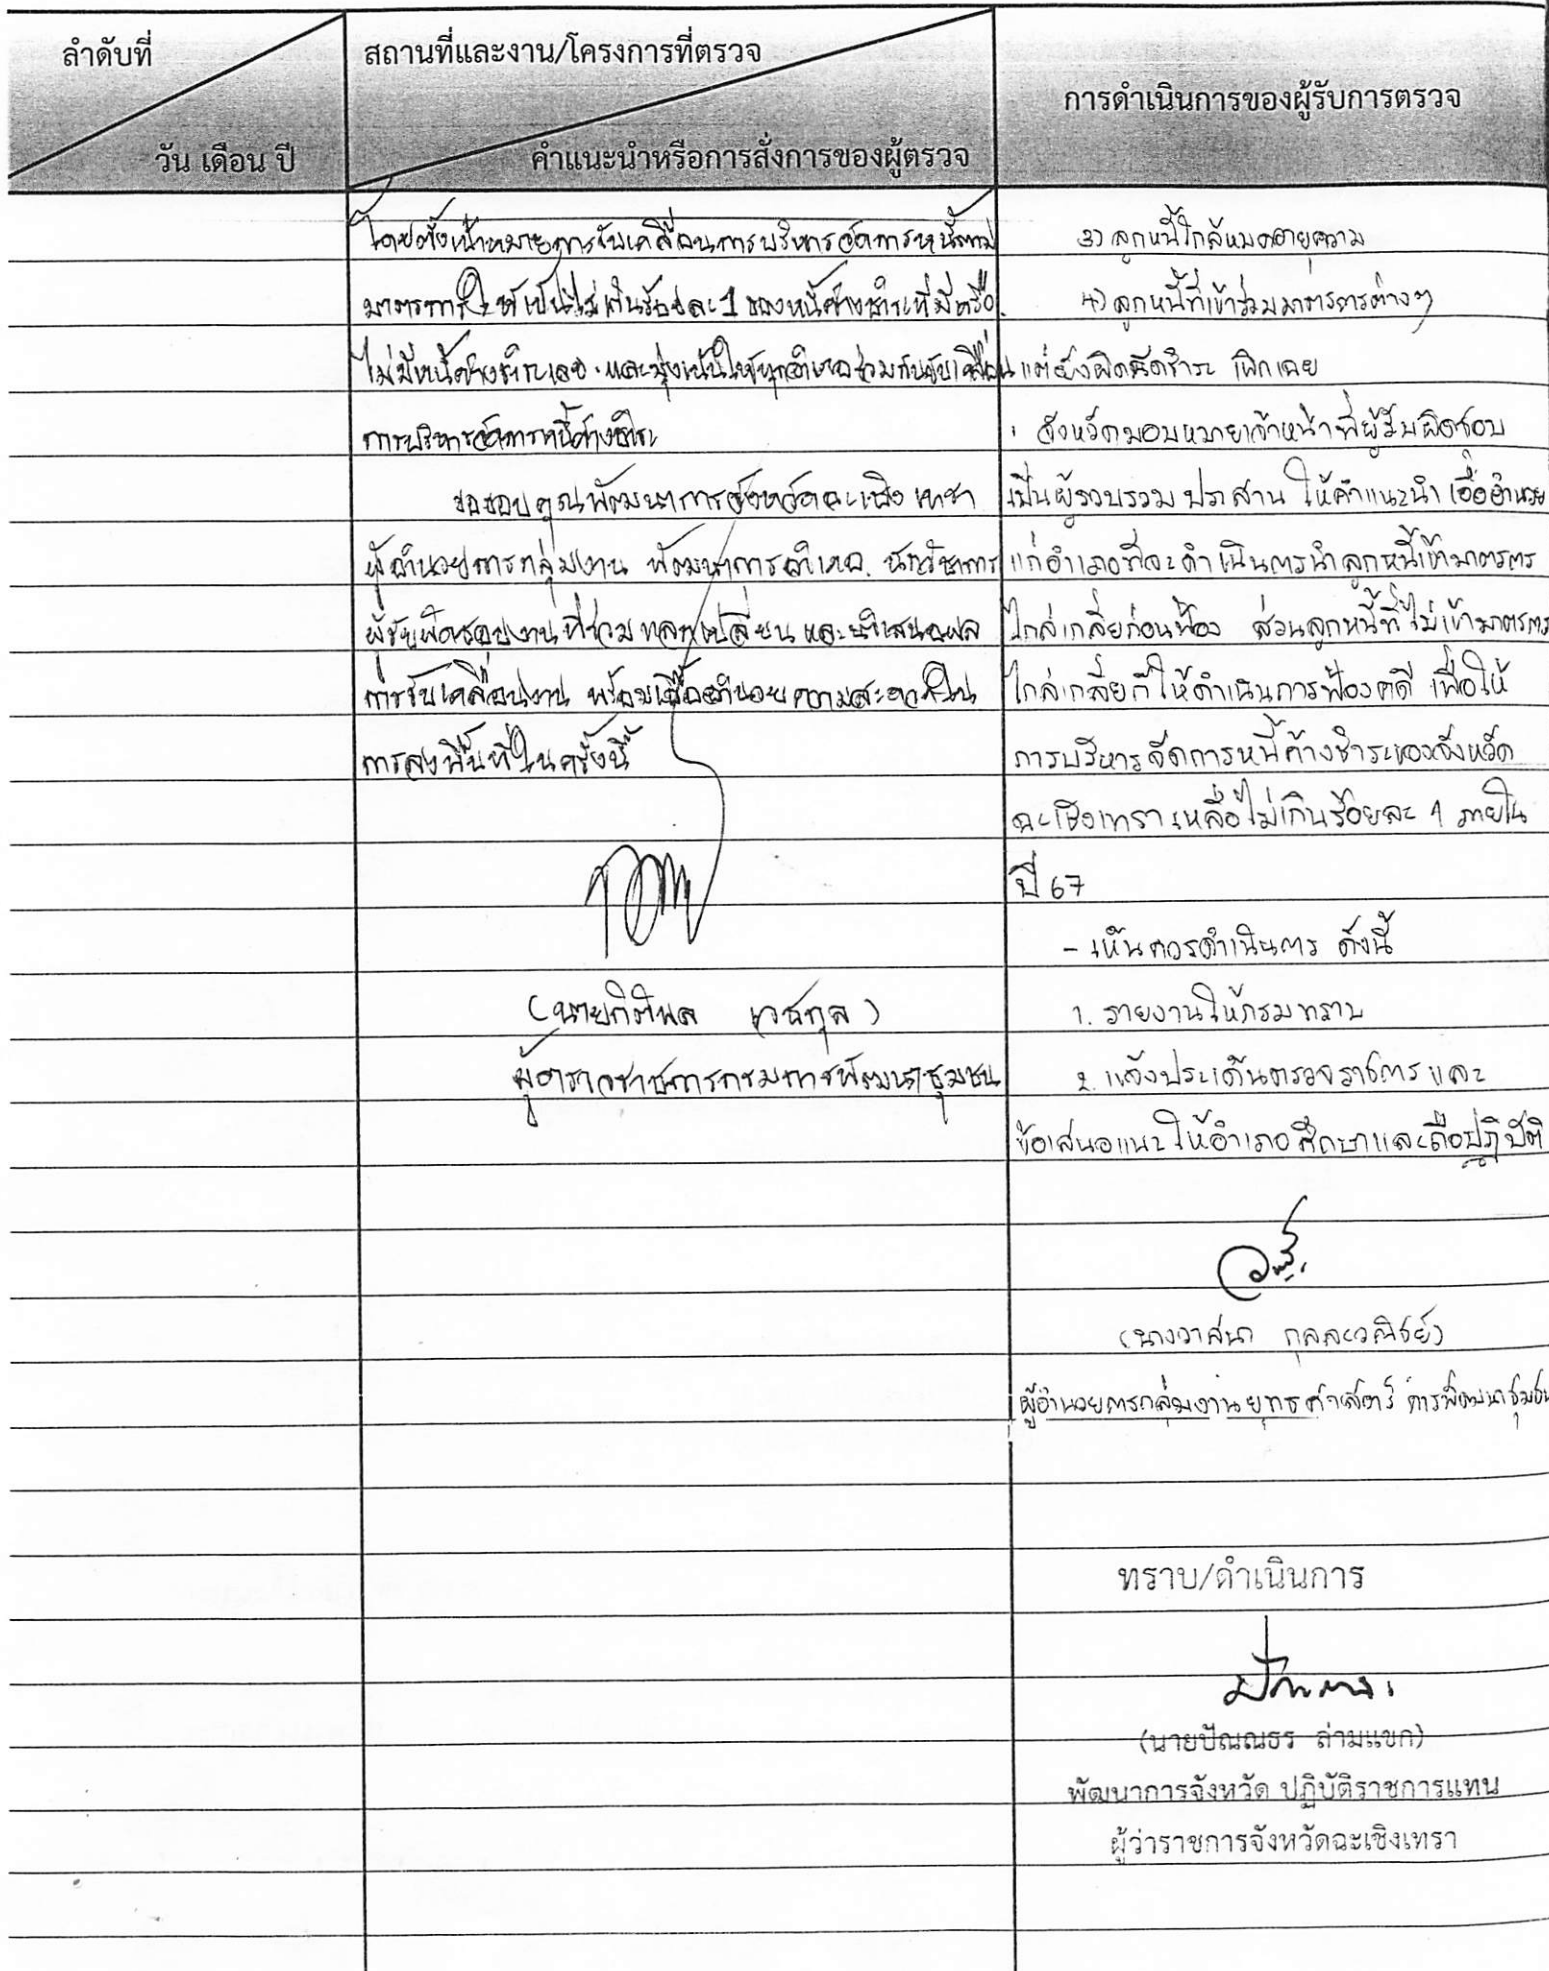 ลำดับที่
วัน เดือน ปี
สถานที่และงาน/โครงการที่ตรวจ
คำแนะนำหรือการสั่งการของผู้ตรวจ
การดำเนินการของผู้รับการตรวจ
โดยตั้งเป้าหมายการขับเคลื่อนการบริหารจัดการหนี้ตาม
มาตรการให้เป็นไม่เกินร้อยละ 1 ของหนี้ค้างชำระที่มีหรือ
ไม่มีหนี้ค้างชำระเลย และมุ่งเน้นให้ทุกอำเภอร่วมกันขับเคลื่อน
การบริหารจัดการหนี้ค้างชำระ
ขอขอบคุณพัฒนาการจังหวัดฉะเชิงเทรา
ผู้อำนวยการกลุ่มงาน พัฒนาการอำเภอ นักวิชาการ
ผู้รับผิดชอบงาน ที่ร่วมแลกเปลี่ยน และนำเสนอผล
การขับเคลื่อนงาน พร้อมเอื้ออำนวยความสะดวกใน
การลงพื้นที่ในครั้งนี้
(นายกิติพล เวชกุล)
ผู้ตรวจราชการกรมการพัฒนาชุมชน
3) ลูกหนี้ใกล้หมดอายุความ
4) ลูกหนี้ที่เข้าร่วมมาตรการต่างๆ
แต่ยังผิดนัดชำระ เพิกเฉย
จังหวัดมอบหมายเจ้าหน้าที่ผู้รับผิดชอบ
เป็นผู้รวบรวม ประสาน ให้คำแนะนำ เอื้ออำนวย
แก่อำเภอที่จะดำเนินการนำลูกหนี้เข้ามาตรการ
ไกล่เกลี่ยก่อนฟ้อง ส่วนลูกหนี้ที่ไม่เข้ามาตรการ
ไกล่เกลี่ยก็ให้ดำเนินการฟ้องคดี เพื่อให้
การบริหารจัดการหนี้ค้างชำระของจังหวัด
ฉะเชิงเทราเหลือไม่เกินร้อยละ 1 ภายใน
ปี 67
- เห็นควรดำเนินการ ดังนี้
1. รายงานให้กรมทราบ
2. แจ้งประเด็นตรวจราชการและ
ข้อเสนอแนะให้อำเภอศึกษาและถือปฏิบัติ
(นางวาสนา กุลละวณิชย์)
ผู้อำนวยการกลุ่มงานยุทธศาสตร์การพัฒนาชุมชน
ทราบ/ดำเนินการ
(นายปัณณธร ล่ามแขก)
พัฒนาการจังหวัด ปฏิบัติราชการแทน
ผู้ว่าราชการจังหวัดฉะเชิงเทรา